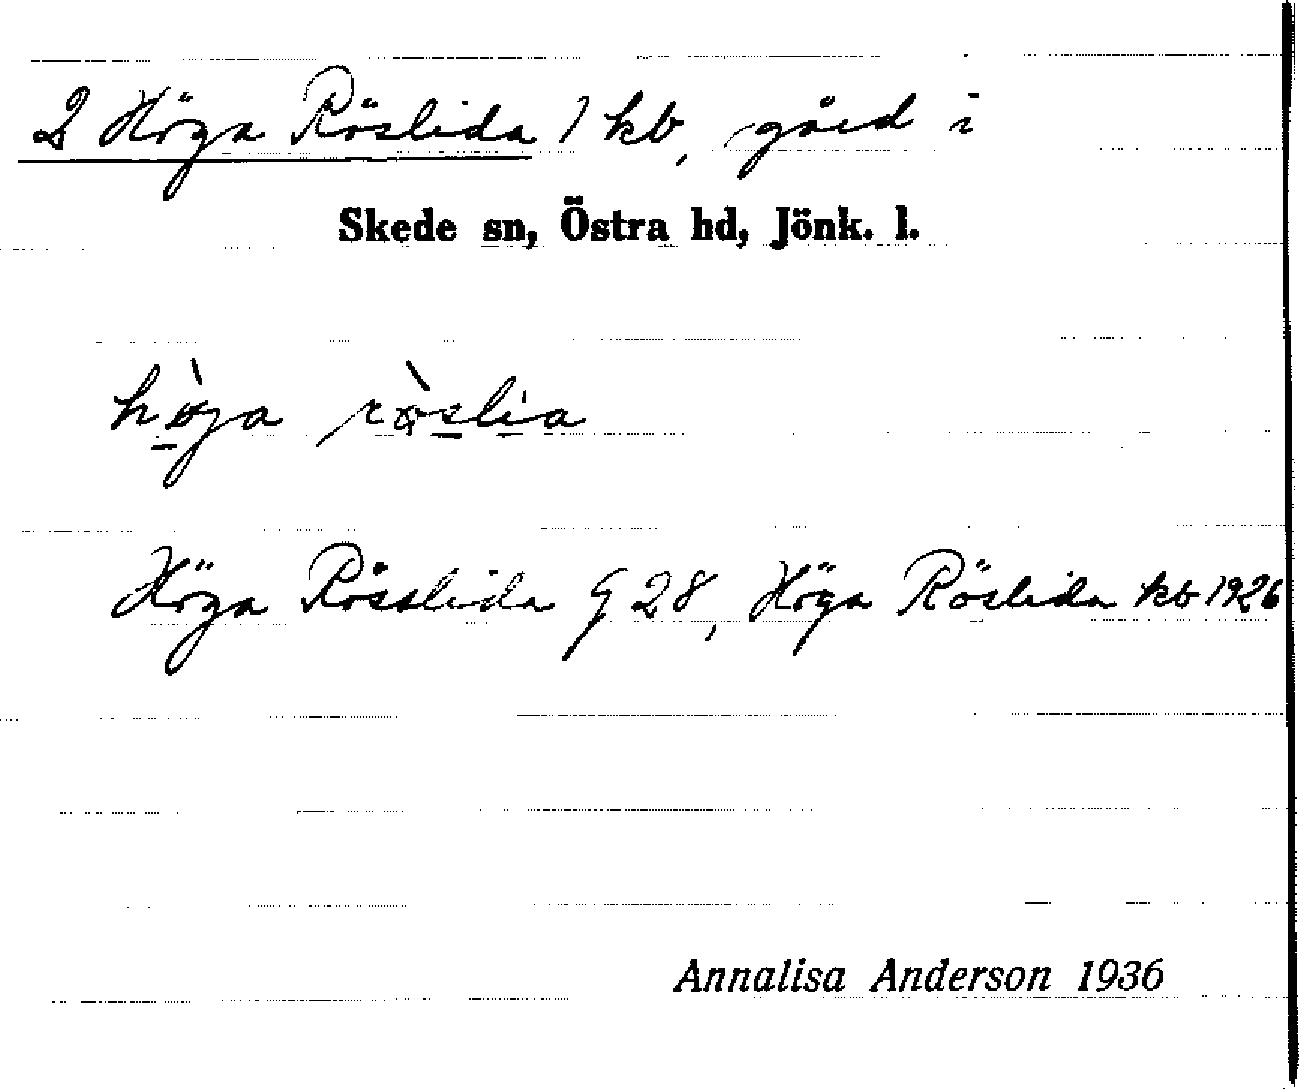 2 Höga Röslida 1 kb, gård i
Skede sn, Östra hd, Jönk. l.
hø̀ga rø̀slia
Höga Rösslida G 28, Höga Röslida kb 1926
Annalisa Anderson 1936